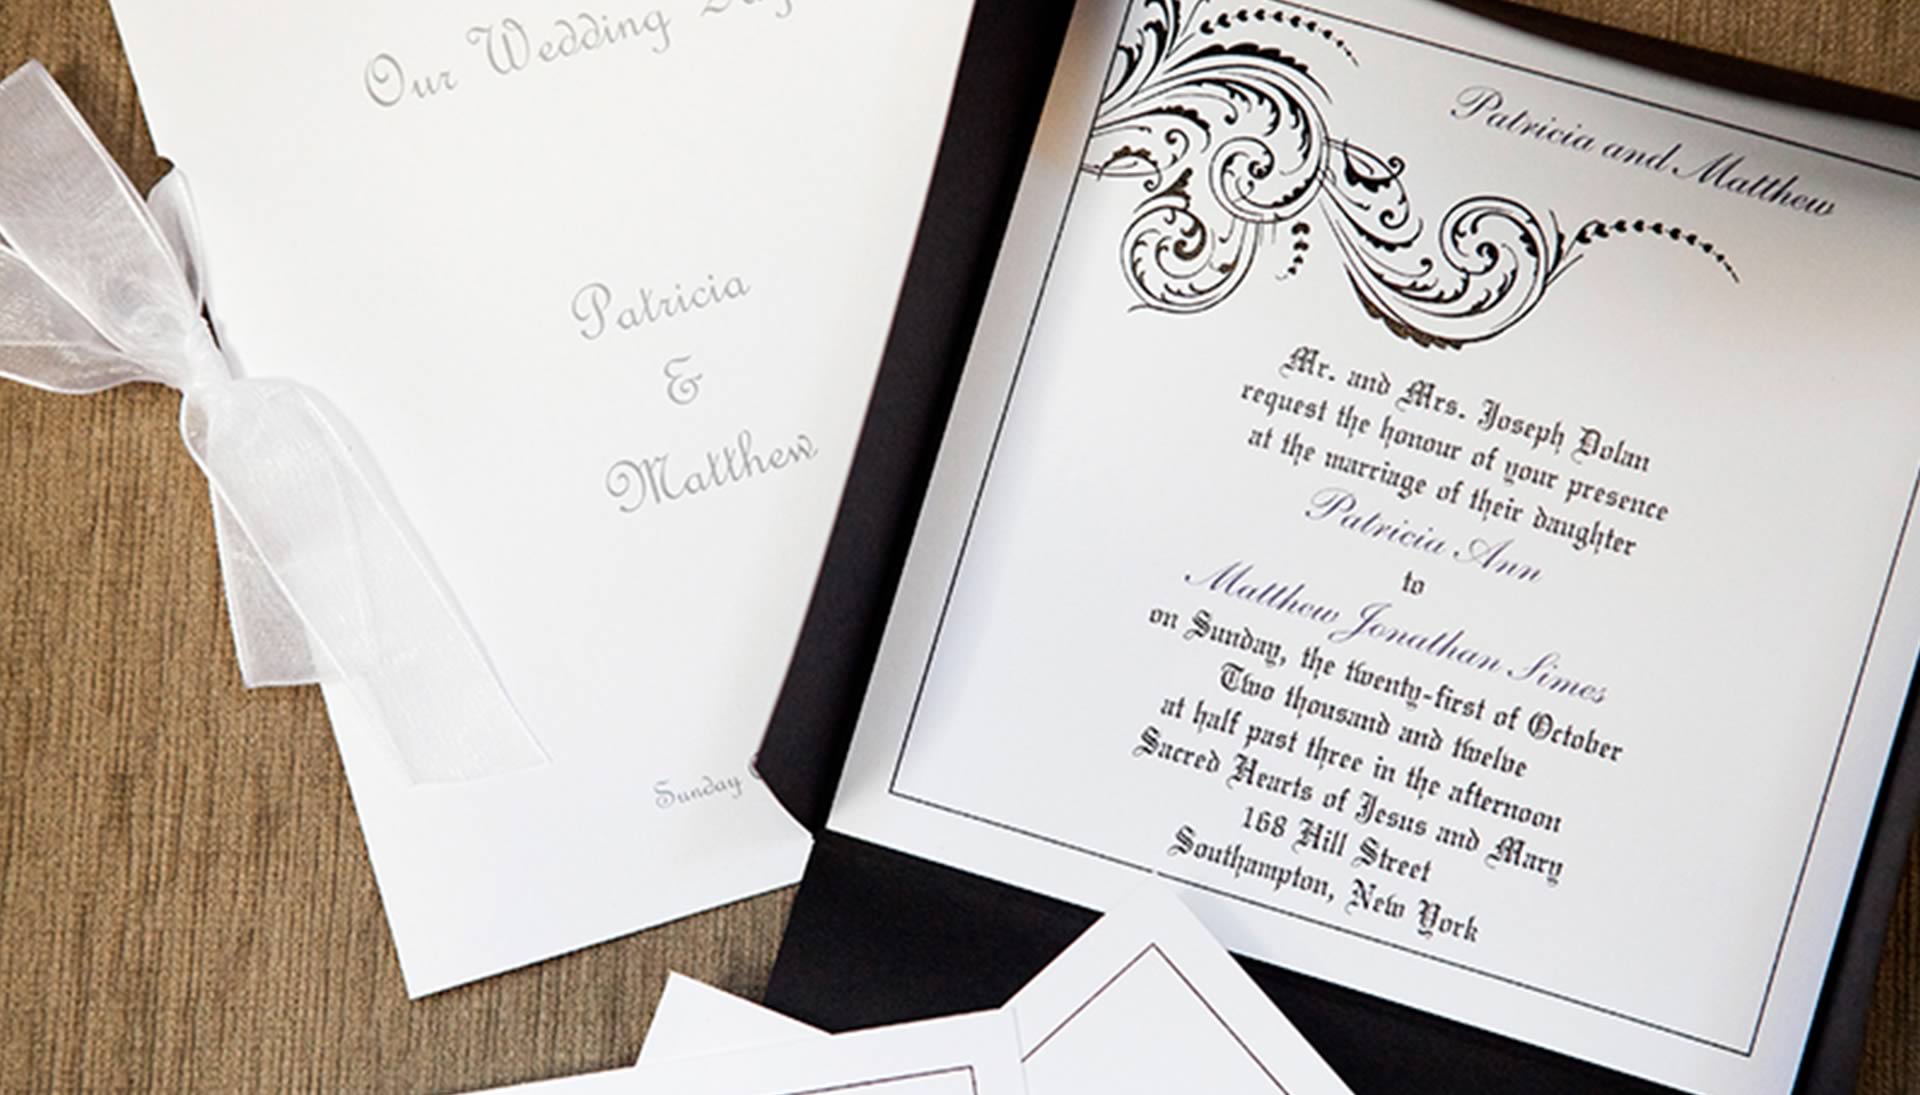 Our Wedding Day
Patricia
&
Matthew
Sunday
Patricia and Matthew
Mr. and Mrs. Joseph Dolan
request the honour of your presence
at the marriage of their daughter
Patricia Ann
to
Matthew Jonathan Simes
on Sunday, the twenty-first of October
Two thousand and twelve
at half past three in the afternoon
Sacred Hearts of Jesus and Mary
168 Hill Street
Southampton, New York